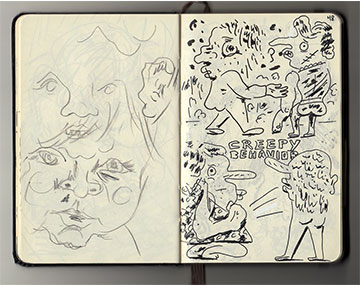 48
CREEPY
BEHAVIOR